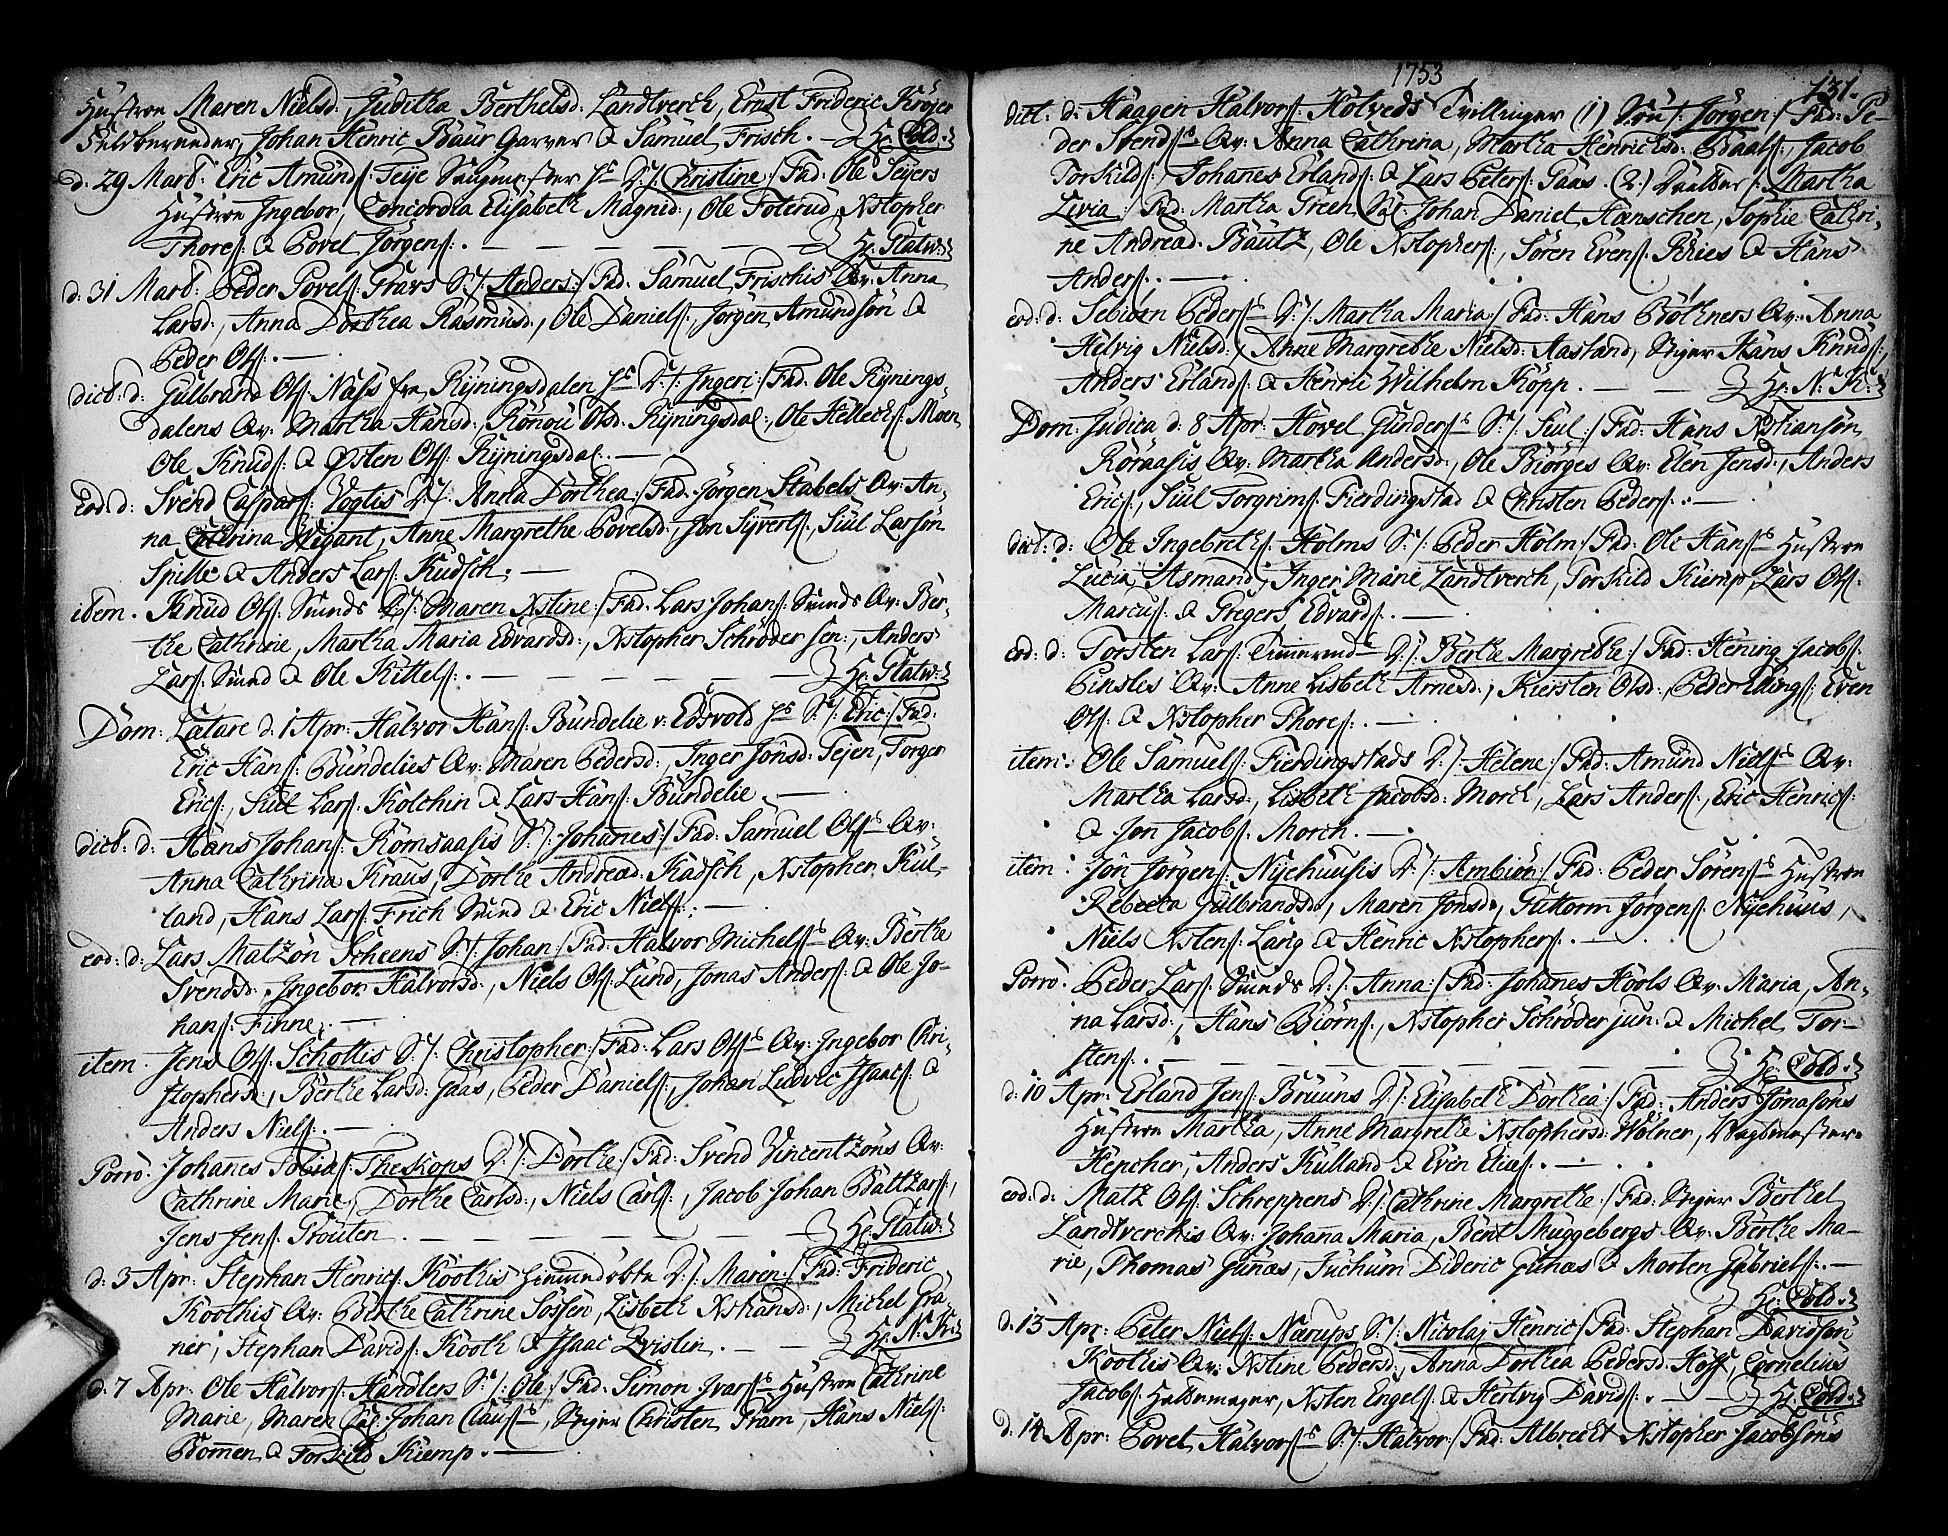 Hustroe Maren Nielsd:, Juditha Berthelsd: Landtverch, Ernst Frideric Kröjer
Feldbereeder, Johan Henric Baur Garver & Samuel Frisch. — Hr: Cold.
d. 29 Mart: Eric Amunds: Teye D:/: Christine:/ Fad: Ole Teijers
Hustroe Ingebor, Concordia Elisabeth Magnid:, Ole Foterud, Xstopher
Thores: & Povel Jörgens:. — — — — Hr: Statw:
d. 31 Mart: Peder Povels: Trars S:/: Anders:/ Fad: Samuel Frischis Qv: Anna
Larsd:, Anna Dorthea Rasmusd:, Ole Daniels:, Jörgen Amundsön &
Peder Ols:. —
dict: d: Gulbrand Ols: Nass fra Ryningsdalen D:/: Ingeri:/ Fad: Ole Rynings-
dalens Qv: Martha Hansd:, Rönou Olsd: Ryningsdal:, Ole Hellecks: Moen,
Ole Knuds: & Østen Ols: Ryningsdal. —
Eod: d: Svend Caspars: Vogtis D:/: Anna Dorthea:/ Fad: Jörgen Stabels Qv: An-
na Cathrina Wigant, Anne Margrethe Povelsd:, Jon Syverts:, Siul Larsön
Spille & Anders Lars: Kudsch: —
idem. Knud Ols: Sunds D:/: Maren Xstine:/ Fad: Lars Johans: Sunds Qv: Ber-
the Cathrine, Martha Maria Edvardsd:, Xstopher Schröder sen:, Anders
Lars: Sund & Ole Kittels:. — — — — Hr: Statw:
Dom: Lætare d. 1 Apr: Halvor Hans: Bundelie v: Edsvold S:/: Eric:/ Fad:
Eric Hans: Bundelies Qv: Maren Pedersd:, Inger Jonsd: Tejen, Torger
Erics:, Siul Lars: Kolchin & Lars Hans: Bundelie. —
dict: d: Hans Johans: Komsaasis S:/: Johanes:/ Fad: Samuel Ols: Qv:
Anna Cathrina Kraus, Dorthe Andread: Kadsch, Xstopher Kul-
land, Hans Lars: Frich Sund & Eric Niels:. —
eod: d: Lars Matzön Scheens S:/: Johan:/ Fad: Halvor Michels: Qv: Berthe
Svendsd:, Ingebor Halvorsd:, Niels Ols: Lund, Jonas Anders: & Ole Jo-
hans: Finne. —
item. Jens Ols: Schottis S:/: Christopher:/ Fad: Lars Ols: Qv: Ingebor Chri-
stophersd:, Berthe Larsd: Gaas, Peder Daniels:, Johan Ludvic Isaacs: &
Anders Niels:. —
Porrò. Johanes Tobias: Theskops D:/: Dorthe:/ Fad: Svend Vincentzöns Qv:
Cathrine Marie, Dorthe Carlsd:, Niels Carls:, Jacob Johan Baltzars:,
Jens Jens: Trouten. — — — — Hr: Statw:
d. 3 Apr: Stephan Henrics: Koothis D:/: Maren:/ Fad: Frideric
Koothis Qv: Berthe Cathrine Sossen, Lisbeth Xstiansd:, Michel Gra-
ner, Stephan Davids: Kooth & Isaac Qvistin. — — Hr: N. Kr:
d. 7 Apr: Ole Halvors: Handlers S:/: Ole:/ Fad: Simon Ivars: Hustroe Cathrine
Marie, Maren Sal: Johan Claus:, Steiger Christen Fram, Hans Niels:
Bomen & Torkild Kiemp. —
1753
131.
dict: d: Haagen Halvors: Holveds Tvillinger (1) Sön/: Jörgen:/ Fad: Pe-
der Svends: Qv: Anna Cathrina, Martha Henricksd: Baals:, Jacob
Torkilds:, Johanes Erlands: & Lars Peters: Gaas. (2.) /: Martha
Livia:/ Fad: Martha Green Sal: Johan Daniel Hænschen, Sophie Cathri-
ne Andread: Bautz, Ole Xstophers:, Sören Evens: Bries & Hans
Anders:. —
eod: d: Sebiörn Peders: D:/: Martha Maria:/ Fad: Hans Böthners Qv: Anna
Helvig Nielsd:, Anne Margrethe Nielsd: Aasland, Steiger Hans Knuds:,
Anders Erlands: & Henric Wilhelm Köpp. — — Hr: N. K:
Dom: Judica d. 8 Apr: Hovel Gunders: S:/: Siul:/ Fad: Hans Xstiansön
Röraasis Qv: Martha Andersd:, Ole Biörges Qv: Elen Jensd:, Anders
Erics:, Siul Torgrims: Fierdingstad & Christen Peders:. —
dict: d: Ole Ingebreths: Holms S:/: Peder Holm:/ Fad: Ole Hans: Hustroe
Lucia Asmand:, Inger Marie Landtverch, Torkild Kiemp, Lars Ols:
Marcus: & Gregers Edvards:. —
eod: d: Torsten Lars: D:/: Berthe Margrethe:/ Fad: Hening Jacobs:
Pinslis Qv: Anne Lisbeth Arnesd:, Kiersten Olsd:, Peder Edings: Even
Ols: & Xstopher Thores:. —
item: Ole Samuels: Fierdingstads D:/: Helene:/ Fad: Amund Niels: Qv:
Martha Larsd:, Lisbeth Jacobsd: Morch, Lars Anders:, Eric Henrics:
& Jon Jacobs: Morch. —
item: Jon Jörgens: Nyehuusis D:/: Ambiör:/ Fad: Peder Sörens: Hustroe
Rebecca Gulbrandsd:, Maren Jonsd:, Guttorm Jörgens: Nyehuus,
Niels Xstens: Larig & Henric Xstophers:. —
Porrò. Peder Lars: Sunds D:/: Anna:/ Fad: Johanes Hools Qv: Maria, An-
na Larsd:, Hans Biörns:, Xstopher Schröder jun: & Michel Tor-
stens:. — — — — Hr: Cold.
d: 10 Apr: Erland Jens: Bruuns D:/: Elisabeth Dorthea:/ Fad: Anders Jonasöns
Hustroe Martha, Anne Margrethe Xstophersd: Wölner, Wagtmester
Hencher, Anders Kulland & Even Elies:. —
eod: d: Matz Ols: Schreppens D:/: Cathrine Margrethe:/ Fad: Steiger Berthel
Landtverchis Qv: Johanna Maria, Bent Muggebergs Qv: Berthe Ma-
rie, Thomas Gunæs, Juchum Dideric Gunæs & Morten Gabriels:. —
Hr: Cold.
d. 13 Apr: Peter Niels: Nærups S:/: Nicolaj Henric:/ Fad: Stephan Davidsön
Koothis Qv: Xstine Pedersd:, Anna Dorthea Pedersd: Höy:, Cornelius
Jacobs:, Xsten Engels: & Hertvig Davids:. — — Hr: Cold.
d. 14 Apr: Povel Halvors: S:/: Halvor:/ Fad: Albrecht Xstopher Jacobsöns